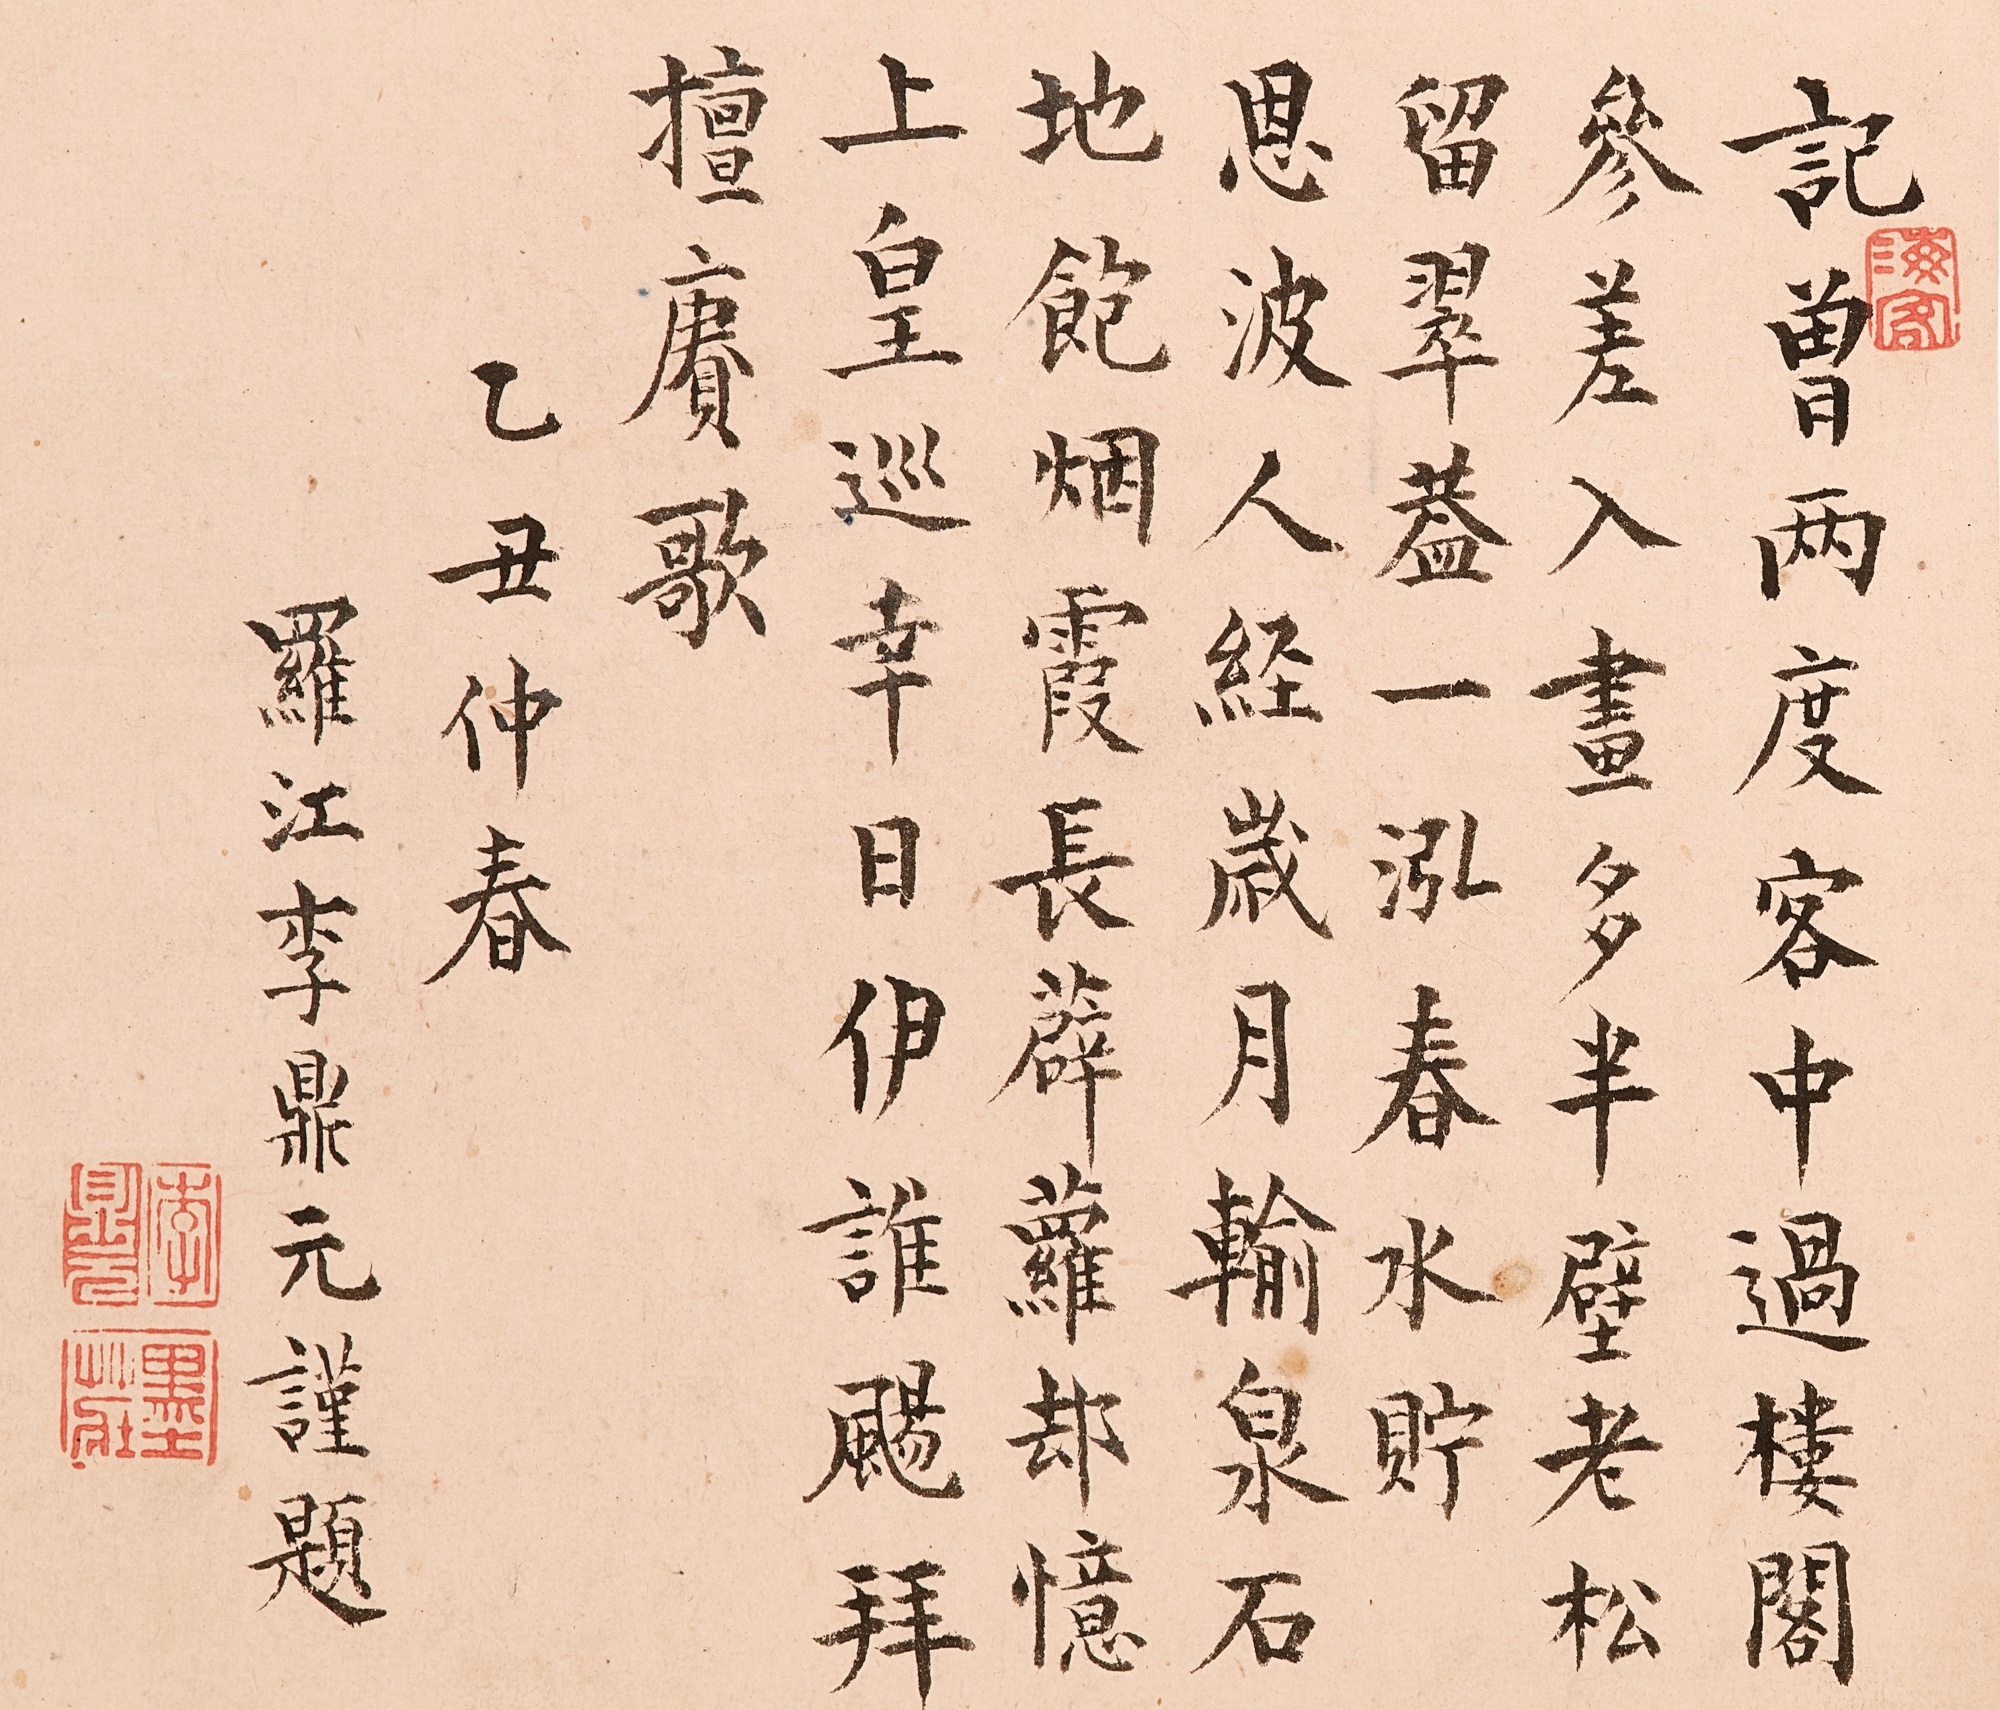 記曾两度客中過樓閣
參差入畫多半壁老松
留翠蓋一泓春水貯
恩波人経歲月輸泉石
地飽烟霞長薜蘿却憶
上皇巡幸日伊誰颺拜
擅賡歌
乙丑仲春
羅江李鼎元謹題
李鼎元
墨莊